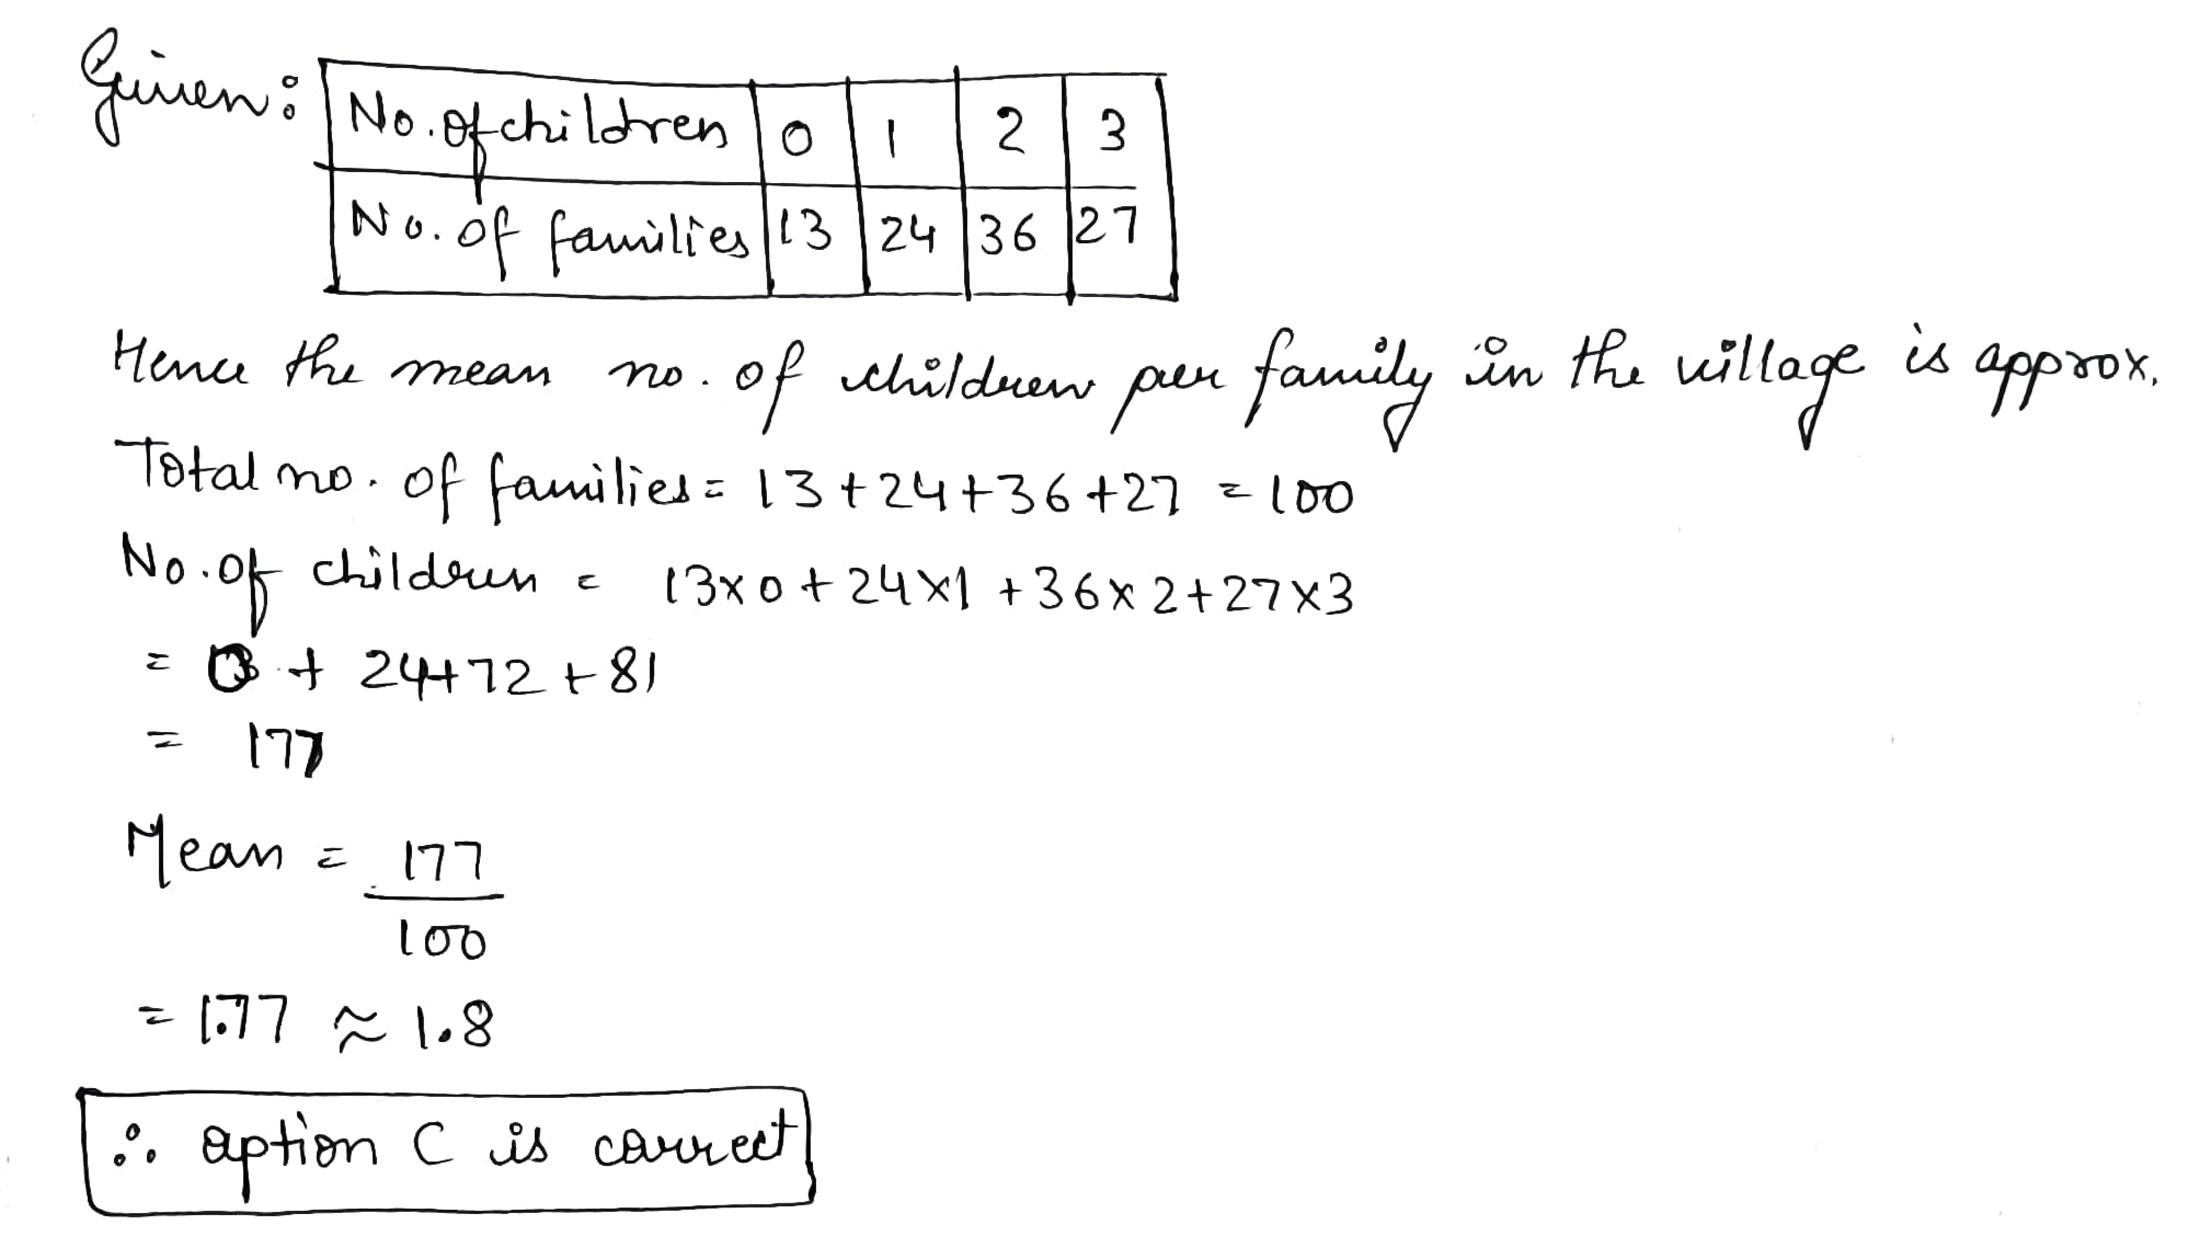 Given:
No. of children 0 1 2 3
No. of families 13 24 36 27
Hence the mean no. of children per family in the village is approx.
Total no. of families = 13+24+36+27 = 100
No. of children = 13×0+24×1+36×2+27×3
= 0 + 24+72+81
= 177
Mean = 177
100
= 1.77 ≈ 1.8
∴ option C is correct